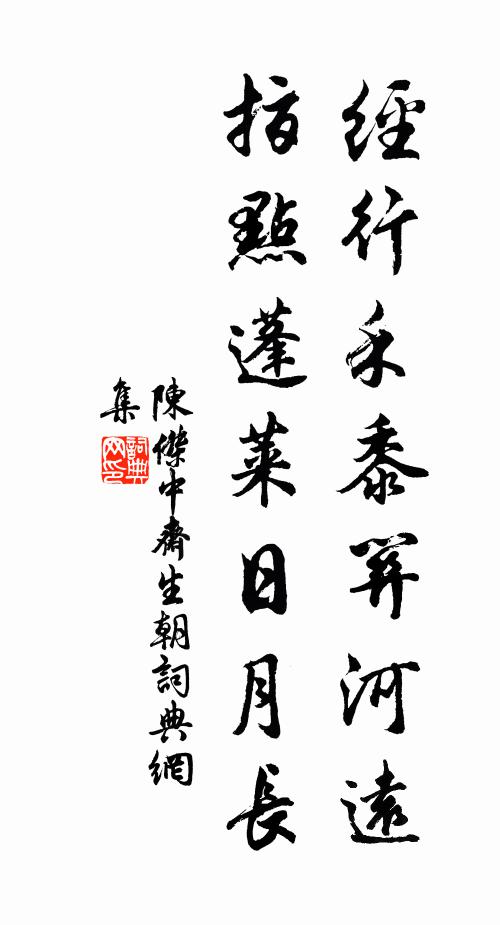 經行禾黍關河遠
指點蓬萊日月長
陳傑中齋生朝詞典網
集
詞典
网印